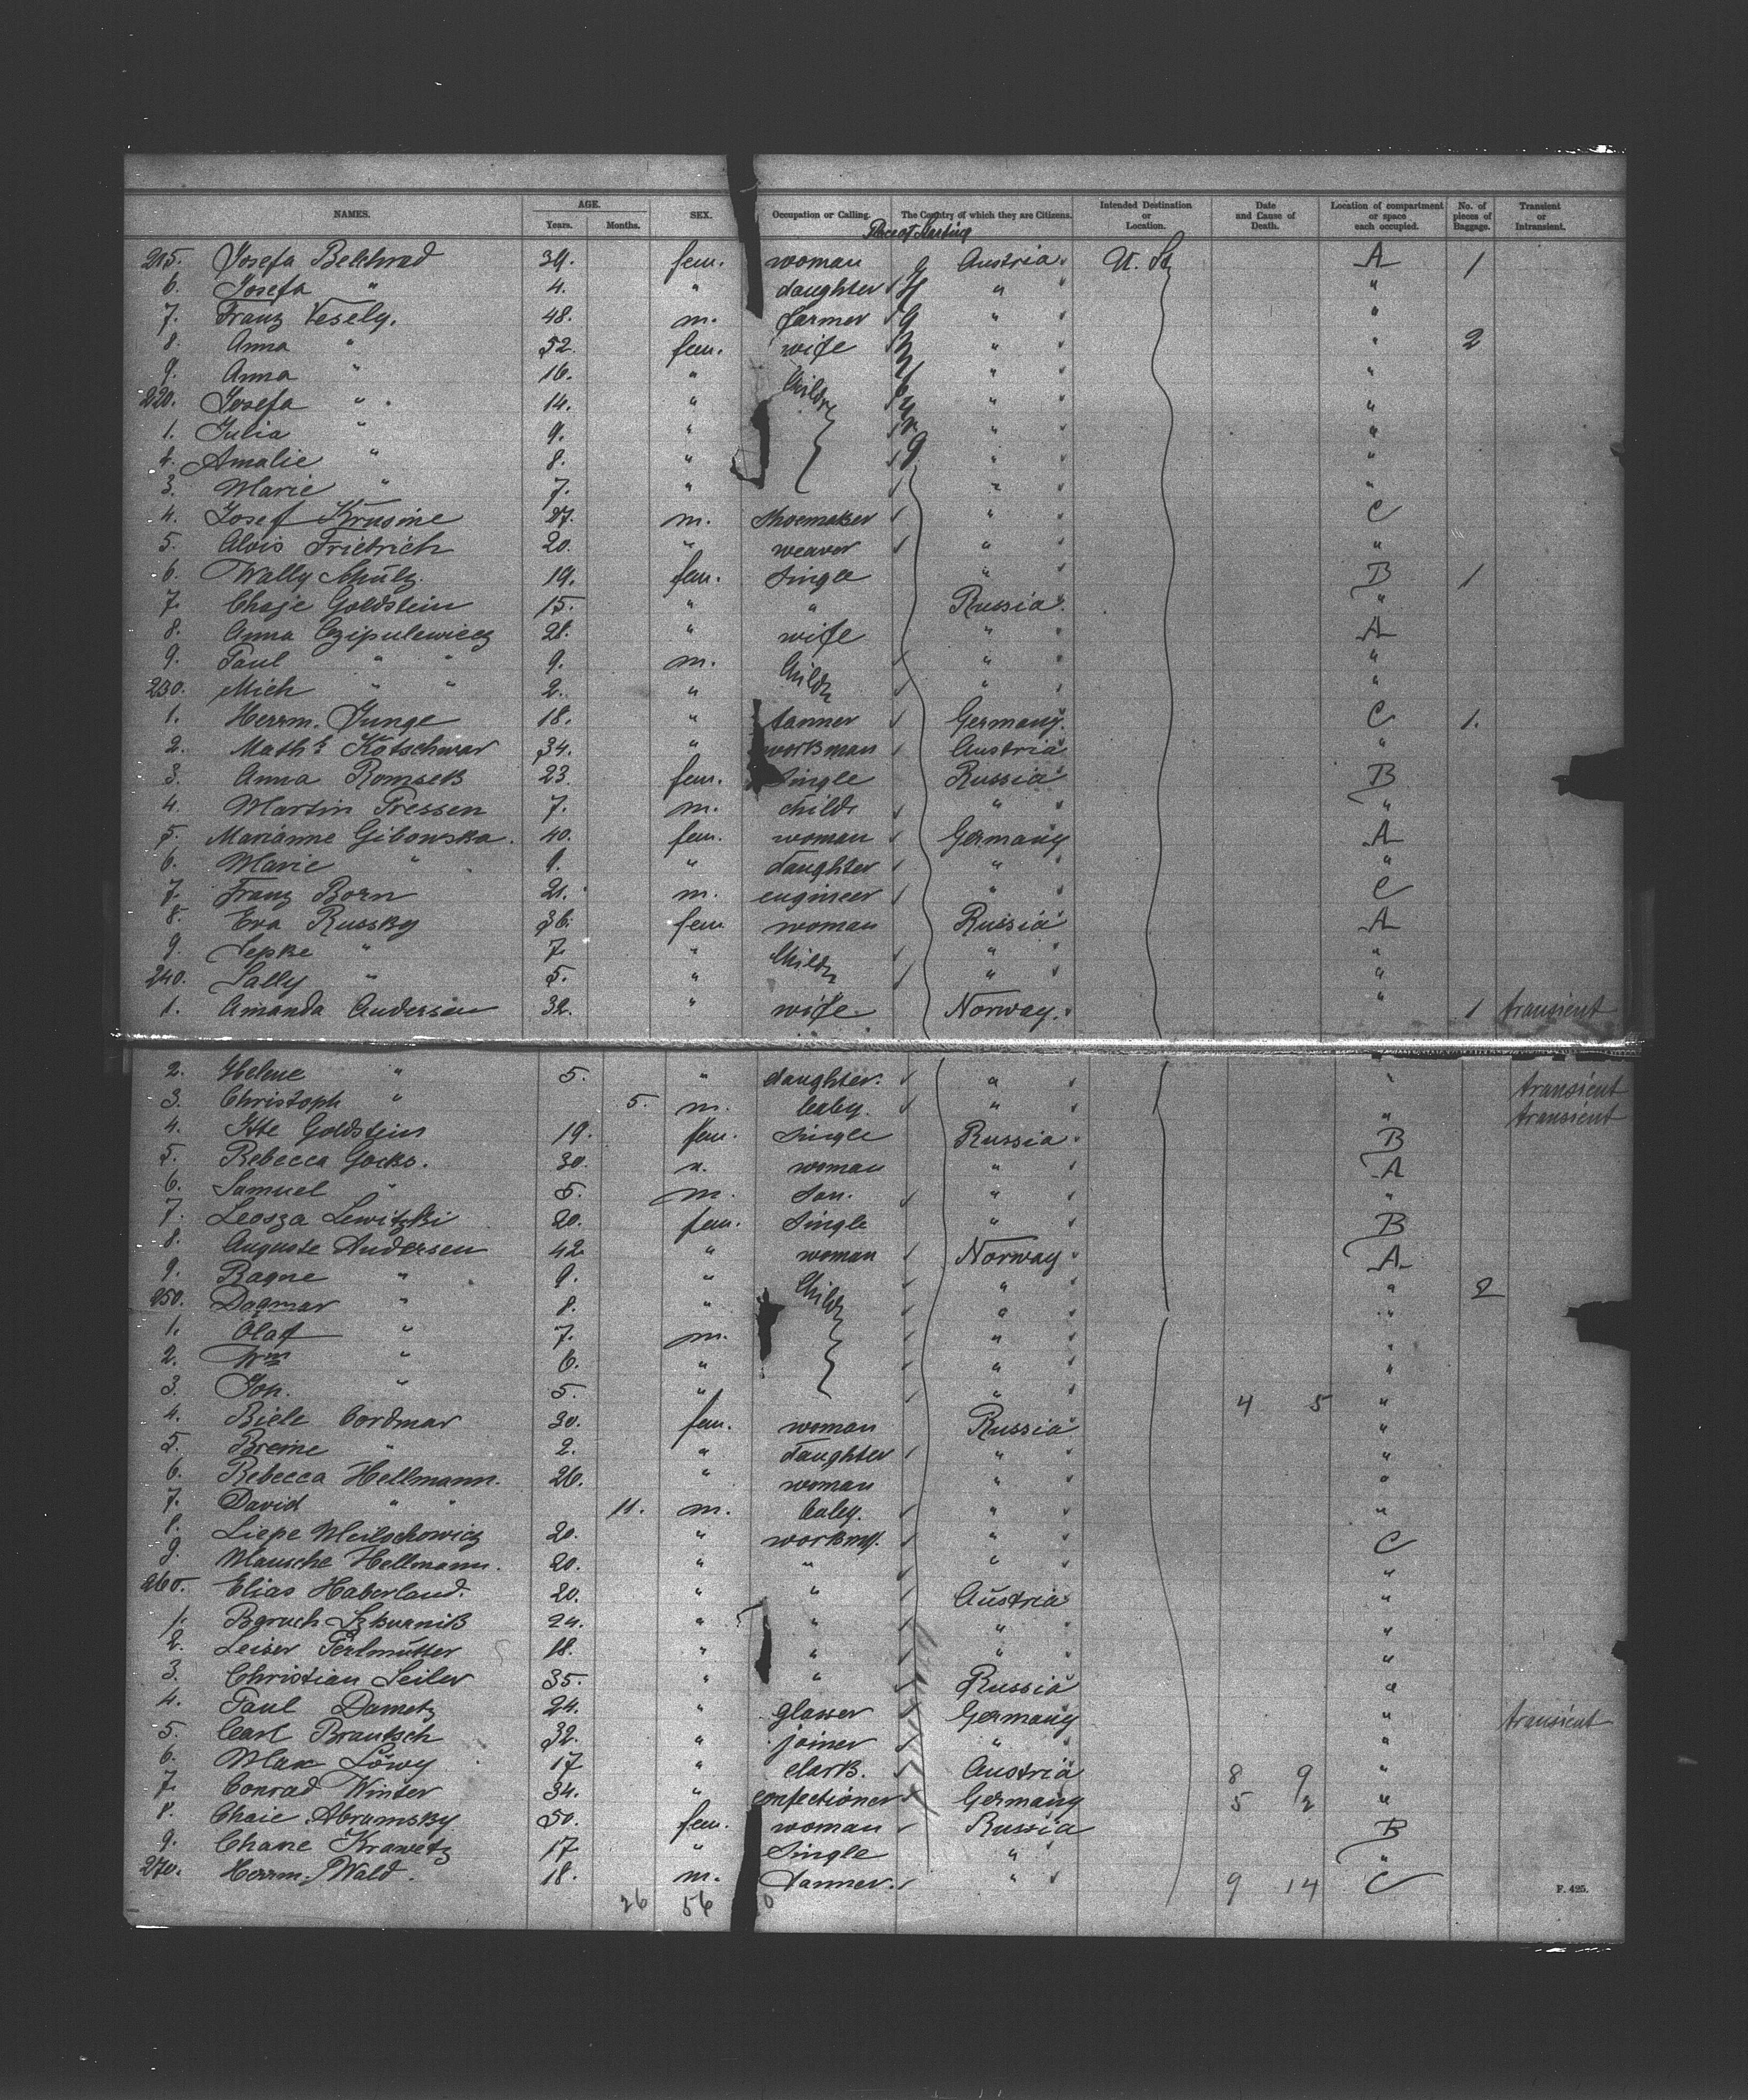 NAMES. AGE. Years. Months. SEX. Occupation or Calling. The Country of which they are Citizens. Intended Destination or Location. Date and Cause of Death. Location of compartment or space each occupied. No. of pieces of Baggage. Transient or Intransient.
Place of Starting
215. Josefa Belehrad 34. fem. woman Austria. U. St A 1
6. Josefa " 4. " daughter " "
7. Franz Vesely. 48. m. farmer " "
8. Anna " 52. fem. wife " " 2
9. Anna " 16. " Childr " "
220. Josefa " 14. " " "
1. Julia " 9. " " "
2. Amalie " 8. " " "
3. Marie " 7. " " "
4. Josef Krusine 27. m. shoemaker " C
5. Alois Friedrich 20. " weaver " "
6. Wally 19. fem. single " B 1
7. Chaje Goldstein 15. " " Russia. "
8. Anna Czipulewicz 28. " wife " A
9. Paul " " 9. m. Childr " "
230. Mich " " 2. " " "
1. Herrm. Junge 18. " tanner Germany. C 1.
2. Maths Kotschwar 34. " workman Austria "
3. Anna Romsek 23 fem. single Russia B
4. Martin Pressen 7. m. child " "
5. Marianne Gibowska. 40. fem. woman Germany A
6. Marie " 9. " daughter " "
7. Franz Born 21. m. engineer " C
8. Eva Russky 36. fem woman Russia A
9. Pepke " 7. " Childr " "
240. Sally " 5. " " "
1. Amanda Andersen 32. " wife Norway. " 1 transient
2. Helene " 5. " daughter. " " transient
3. Christoph " 5. m. baby. " " transient
4. Itte Goldstein 19. fem. single Russia. B
5. Rebecca Gocks. 30. " woman " A
6. Samuel " 5. m. son. " "
7. Leosza Lewitzki 20. fem. single " B
8. Auguste Andersen 42 " woman Norway A
9. Ragne " 9. " Childr " " 2
250. Dagmar " 8. " " "
1. Olaf " 7. m. " "
2. Wm " 6. " " "
3. Joh. " 5. " " 4 5 "
4. Biele Cordmar 30. fem. woman Russia "
5. Breine " 2. " daughter " "
6. Rebecca Hellmann. 26. " woman " "
7. David " " 11. m. baby. " "
8. Liepe Meilschowicz 20. " workmn. " C
9. Mausche Hellmann. 20. " " " "
260. Elias Haberland. 20. " " Austria "
1. Baruch Szkurnik 24. " " " "
2. Leiser Perlmutter 18. " " " "
3. Christian Seiler 35. " " Russia "
4. Paul Dametz 24. " glaser Germany " transient
5. Carl Brautsch 32. " joiner " "
6. Max Löwy 17 " clark. Austria 8 9 "
7. Conrad Winter 34. " confectioner Germany 5 2 "
8. Chaie Abramsky 50. fem. woman Russia B
9. Chane Krawetz 17. " single " "
270. Herrm. Wald. 18. m. tanner. " 9 14 C
26 56 0
F. 425.